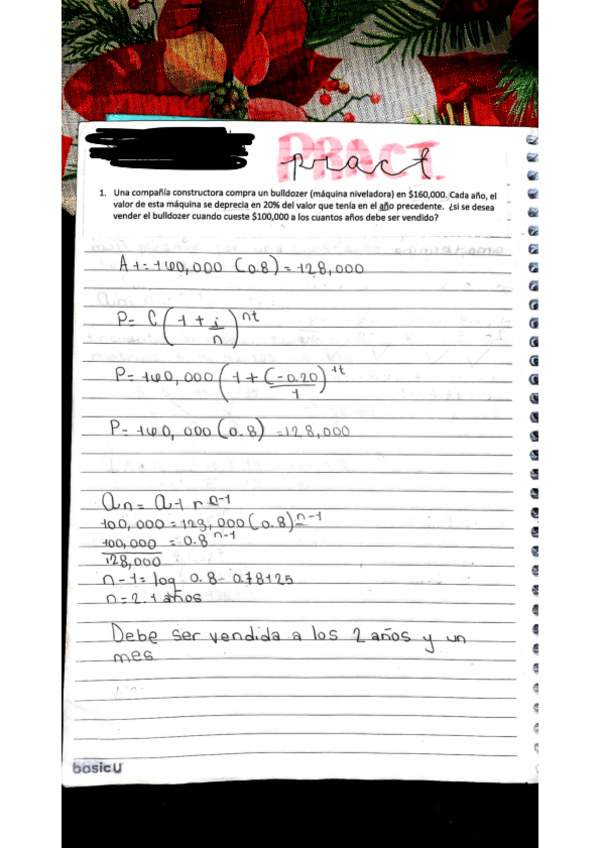 PRACT.
pract
1. Una compañía constructora compra un bulldozer (máquina niveladora) en $160,000. Cada año, el
valor de esta máquina se deprecia en 20% del valor que tenía en el año precedente. ¿si se desea
vender el bulldozer cuando cueste $100,000 a los cuantos años debe ser vendido?
A1=160,000 (0.8)=128,000
P= C(1+i/n)^nt
P=160,000(1+(-0.20)/1)^1t
P=160,000(0.8)=128,000
an=a1 r^n-1
100,000=128,000(0.8)^n-1
100,000/128,000 = 0.8^n-1
n-1=log 0.8 0.78125
n=2.1 años
Debe ser vendida a los 2 años y un
mes
basicU